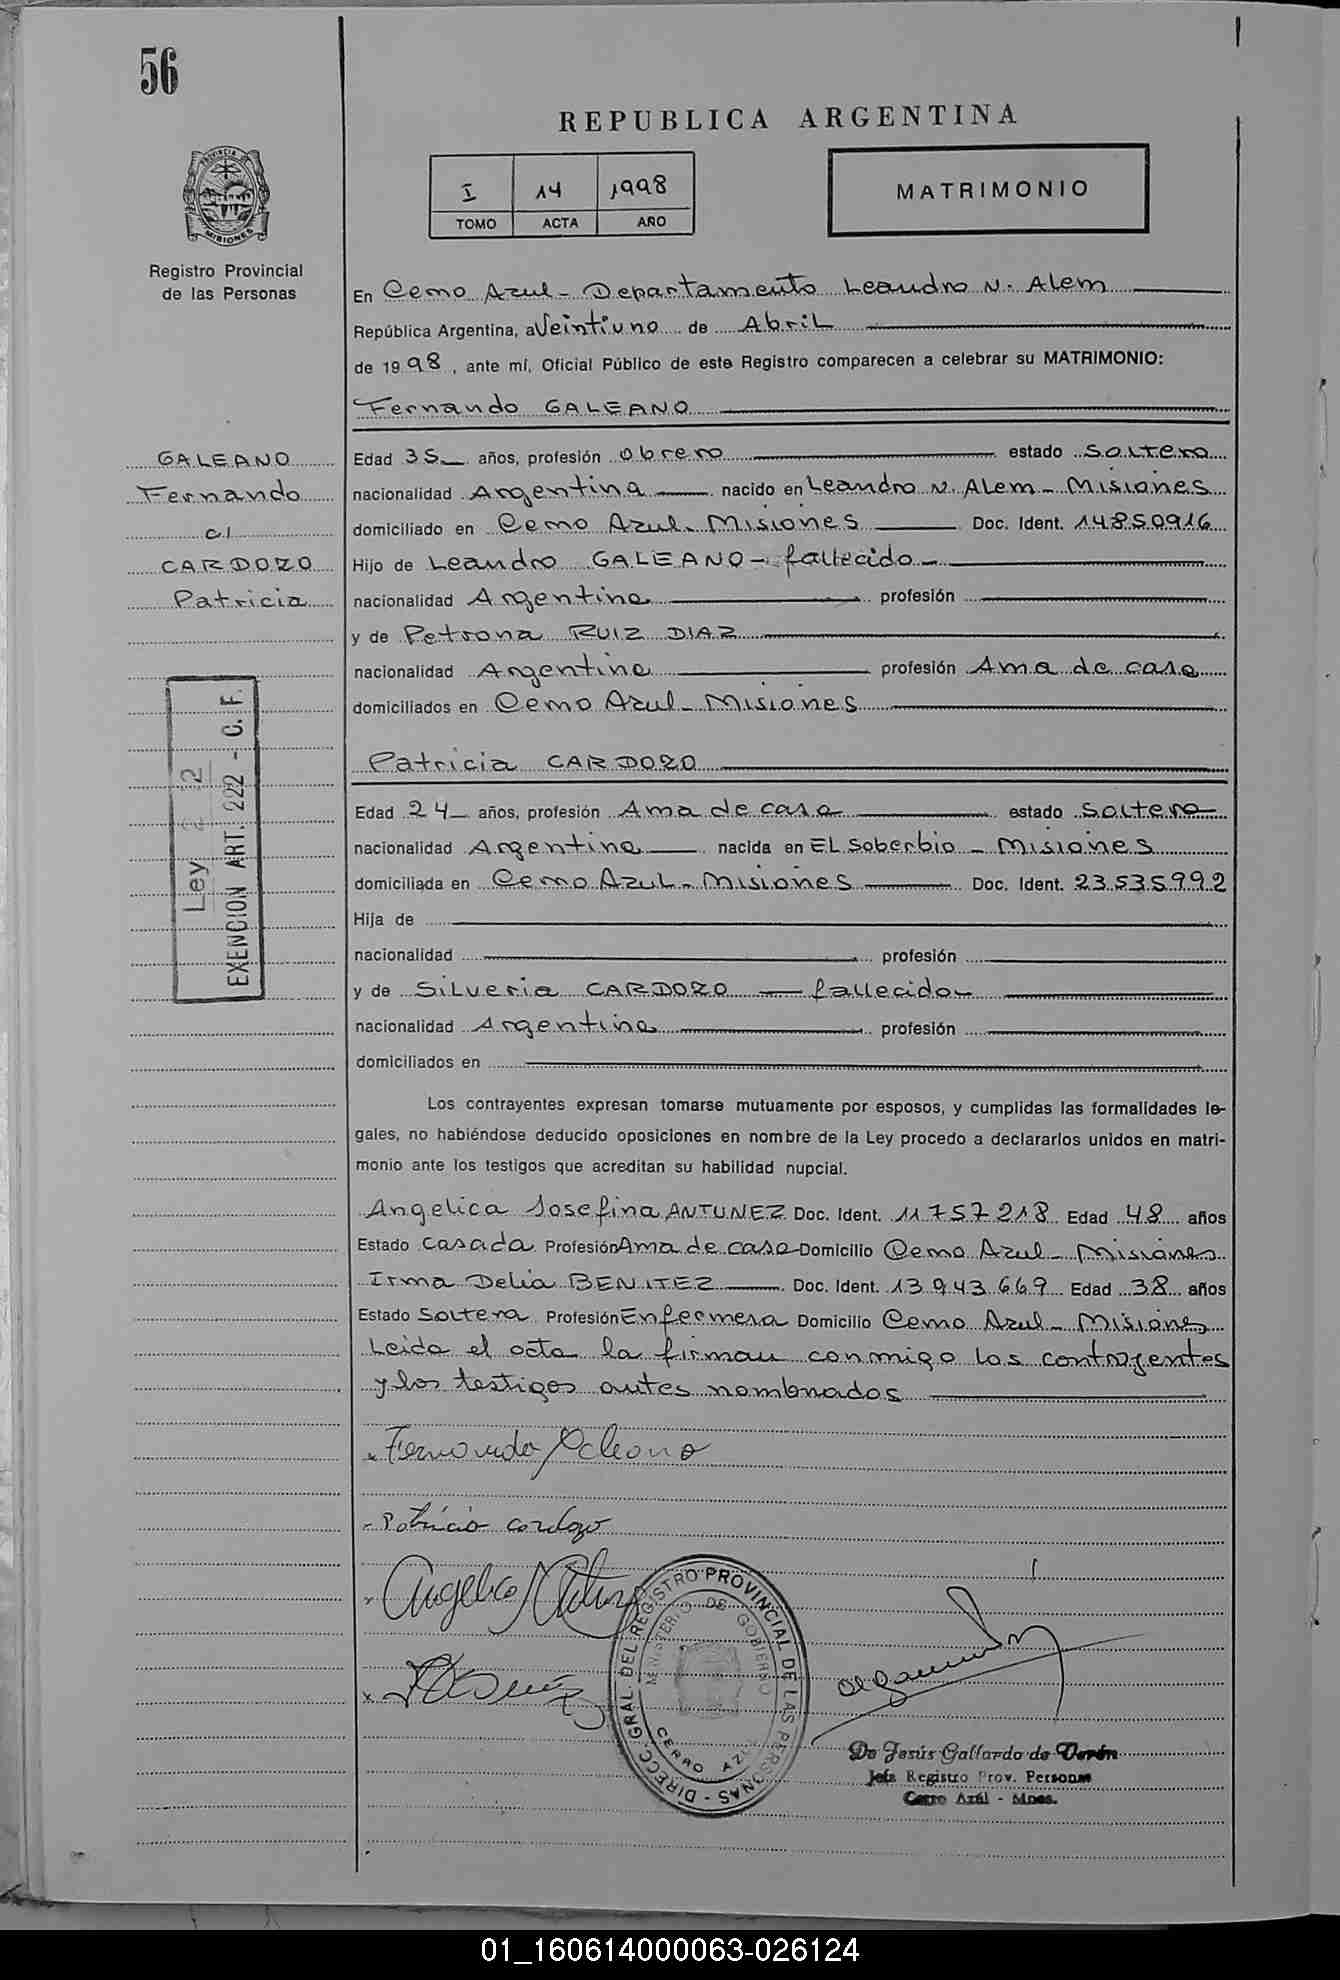 56
REPUBLICA ARGENTINA
I 14 1998
TOMO ACTA AÑO
MATRIMONIO
PROVINCIA DE MISIONES
Registro Provincial
de las Personas
En Cerro Azul - Departamento Leandro N. Alem
República Argentina, a Veintiuno de Abril
de 1998, ante mí, Oficial Público de este Registro comparecen a celebrar su MATRIMONIO:
Fernando GALEANO
GALEANO
Fernando
c/
CARDOZO
Patricia
Edad 35 años, profesión obrero estado soltero
nacionalidad Argentina nacido en Leandro N. Alem - Misiones
domiciliado en Cerro Azul - Misiones Doc. Ident. 14850916
Hijo de Leandro GALEANO - fallecido -
nacionalidad Argentina profesión
y de Petrona RUIZ DIAZ
nacionalidad Argentina profesión Ama de casa
domiciliados en Cerro Azul - Misiones
Ley 2 2
EXENCION ART. 222 - C. F.
Patricia CARDOZO
Edad 24 años, profesión Ama de casa estado soltera
nacionalidad Argentina nacida en El Soberbio - Misiones
domiciliada en Cerro Azul - Misiones Doc. Ident. 23535992
Hija de
nacionalidad profesión
y de Silveria CARDOZO — fallecida -
nacionalidad Argentina profesión
domiciliados en
Los contrayentes expresan tomarse mutuamente por esposos, y cumplidas las formalidades le-
gales, no habiéndose deducido oposiciones en nombre de la Ley procedo a declararlos unidos en matri-
monio ante los testigos que acreditan su habilidad nupcial.
Angelica Josefina ANTUNEZ Doc. Ident. 11757218 Edad 48 años
Estado casada Profesión Ama de casa Domicilio Cerro Azul - Misiones
Irma Delia BENITEZ Doc. Ident. 13943669 Edad 38 años
Estado Soltera Profesión Enfermera Domicilio Cerro Azul - Misiones
Leida el acta la firman conmigo los contrayentes
y los testigos antes nombrados
Fernando Galeano
Patricia Cardozo
DIREC. GRAL. DEL REGISTRO PROVINCIAL DE LAS PERSONAS -
MINISTERIO DE GOBIERNO
CERRO AZUL
De Jesús Gallardo de Verón
Jefa Registro Prov. Personas
Cerro Azúl - Mnes.
01_160614000063-026124